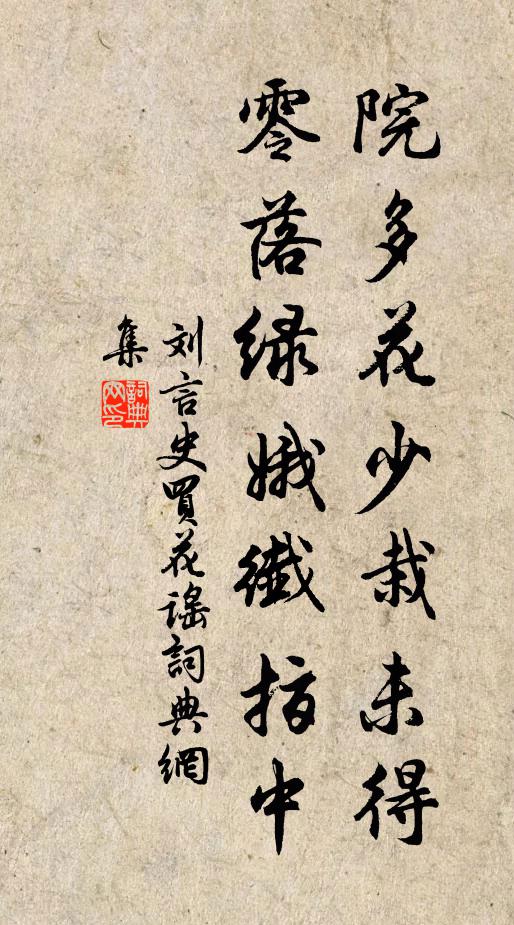 院多花少栽未得
零落绿娥纖指中
刘言史買花謡詞典網
集
詞典
网印